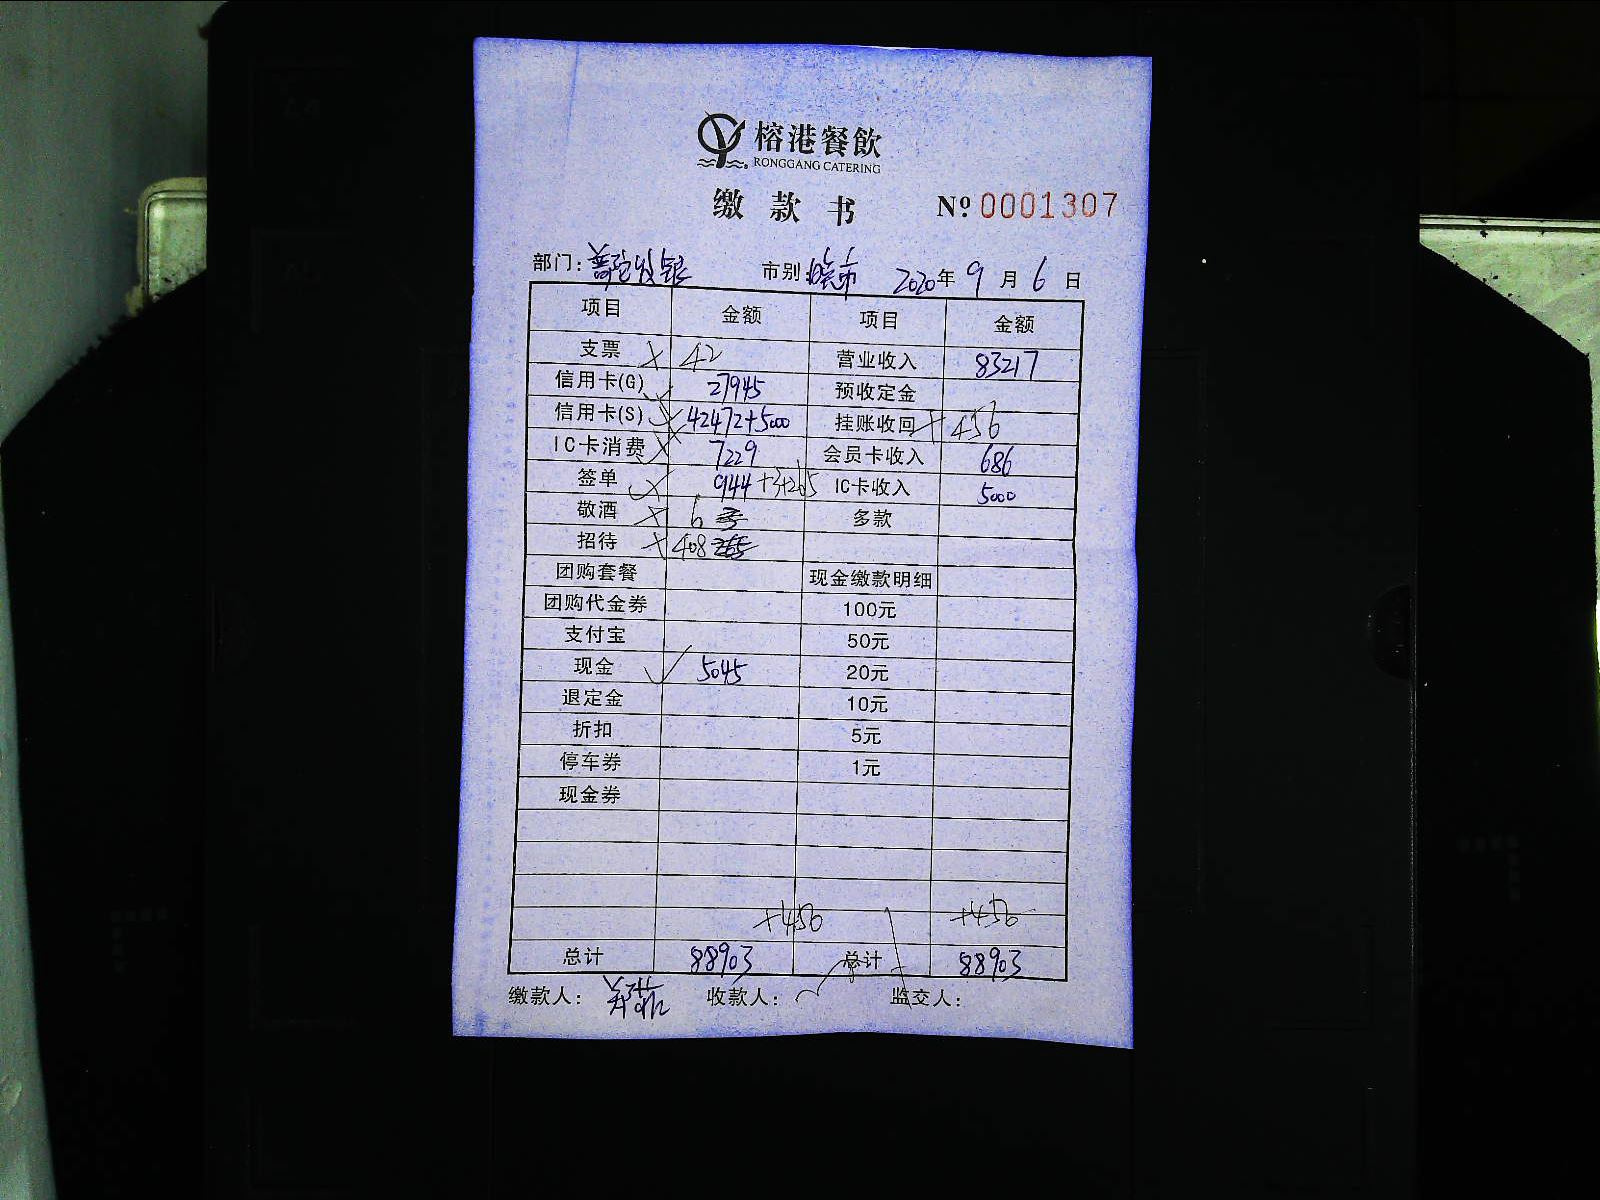 榕港餐飲
RONGGANG CATERING
缴款书 Nº 0001307
部门: 收银 市别 晚市 2020年9月6日
项目 金额 项目 金额
支票 42 营业收入 83217
信用卡(G) 27945 预收定金
信用卡(S) 42472+5000 挂账收回 +456
IC卡消费 7229 会员卡收入 686
签单 944 IC卡收入 5000
敬酒 6 多款
招待 408
团购套餐 现金缴款明细
团购代金券 100元
支付宝 50元
现金 5045 20元
退定金 10元
折扣 5元
停车券 1元
现金券
+456 +456
总计 88903 总计 88903
缴款人: 收款人: 监交人: